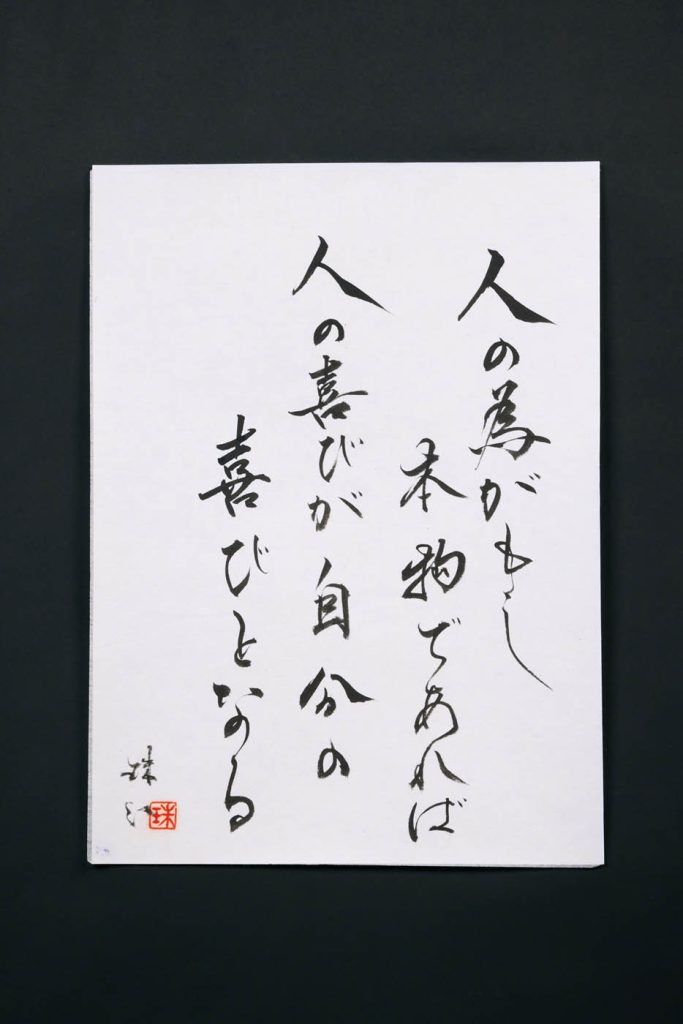 人の為がもし
本物であれば
人の喜びが自分の
喜びとなる
珠江
珠